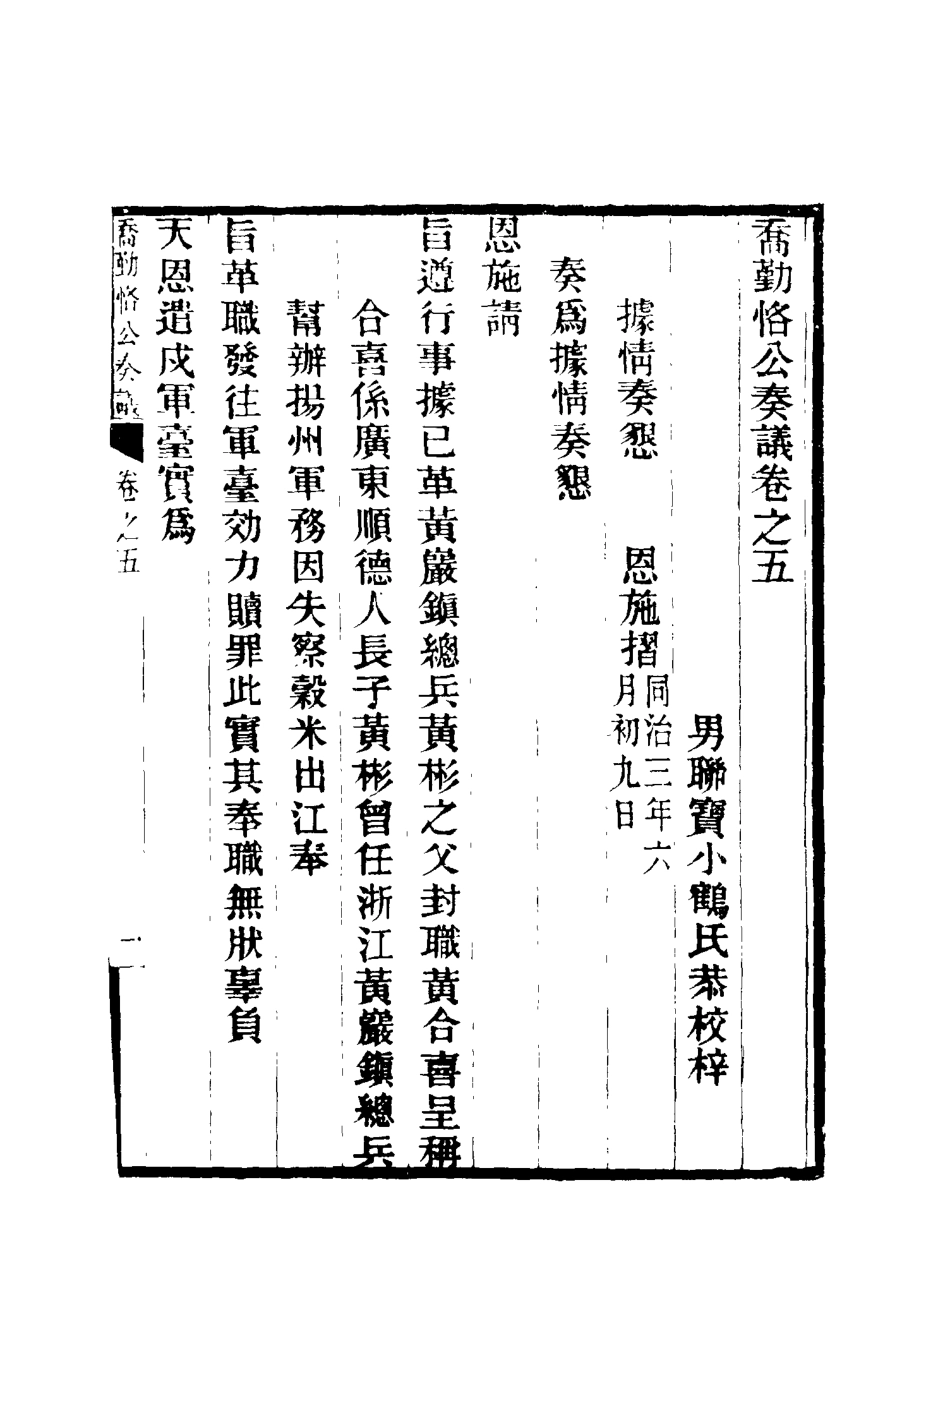 喬勤恪公奏議卷之五
男聯寶小鶴氏恭校梓
據情奏懇　恩施摺同治三年六月初九日
奏爲據情奏懇
恩施請
旨遵行事據已革黃巖鎭總兵黃彬之父封職黃合喜呈稱
合喜係廣東順德人長子黃彬曾任浙江黃巖鎭總兵
幫辦揚州軍務因失察穀米出江奉
旨革職發往軍臺効力贖罪此實其奉職無狀辜負
天恩遣戍軍臺實爲
喬勤恪公奏議　卷之五　一